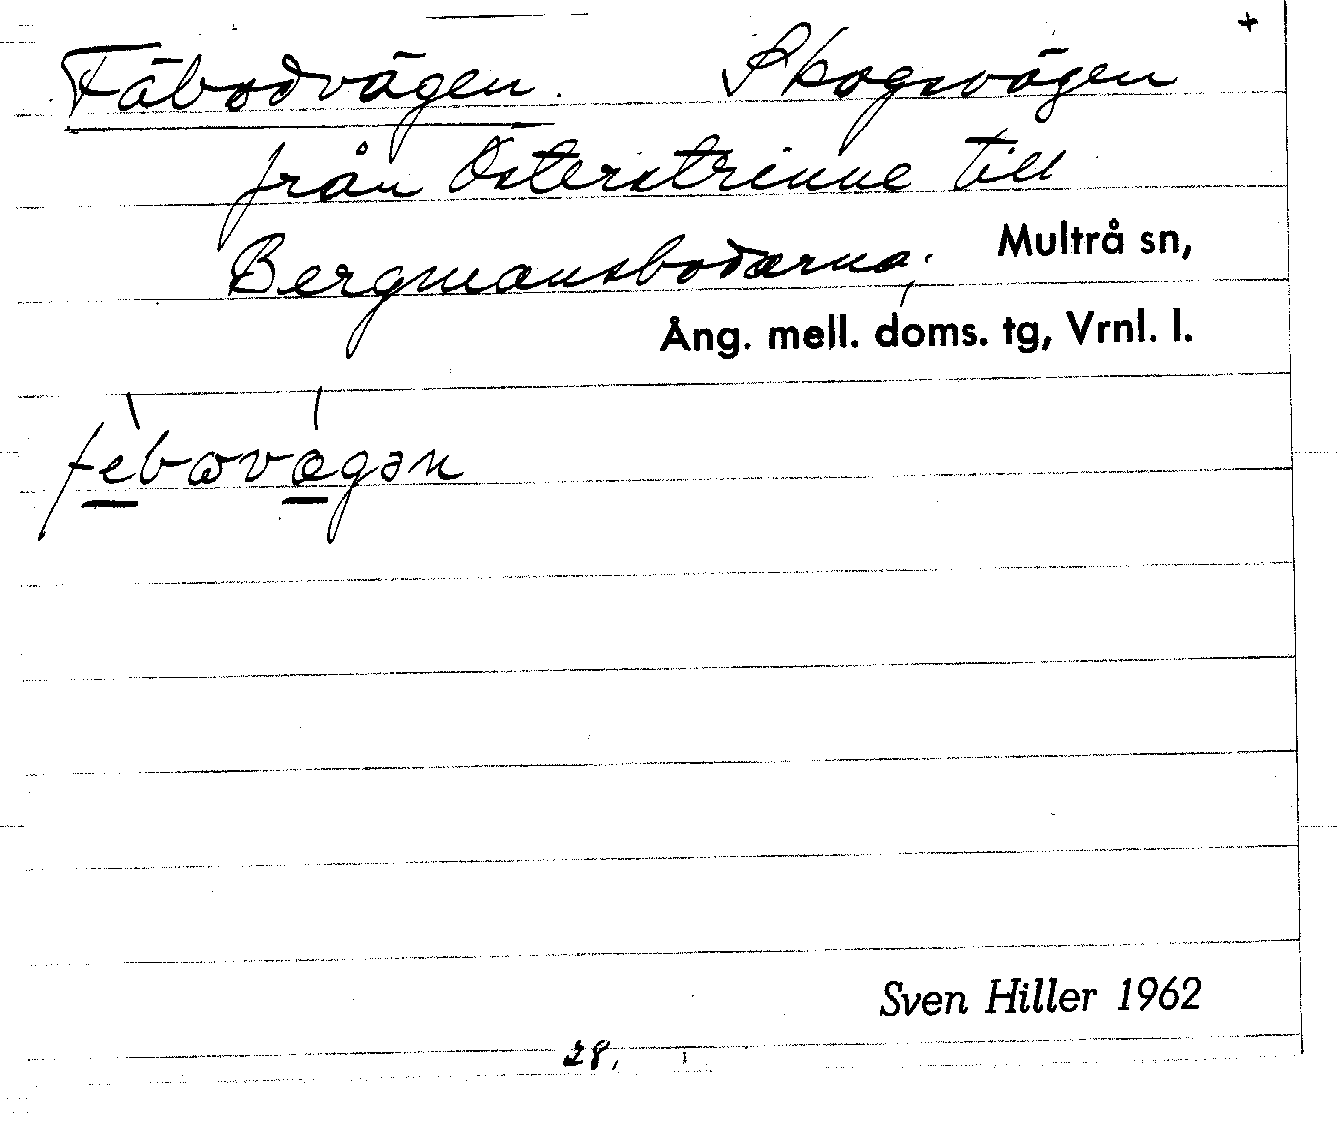 +
Fäbodvägen. Skogsvägen
från Österstrinne till
Bergmansbodarna.
Multrå sn,
Ång. mell. doms. tg, Vrnl. l.
Sven Hiller 1962
28,